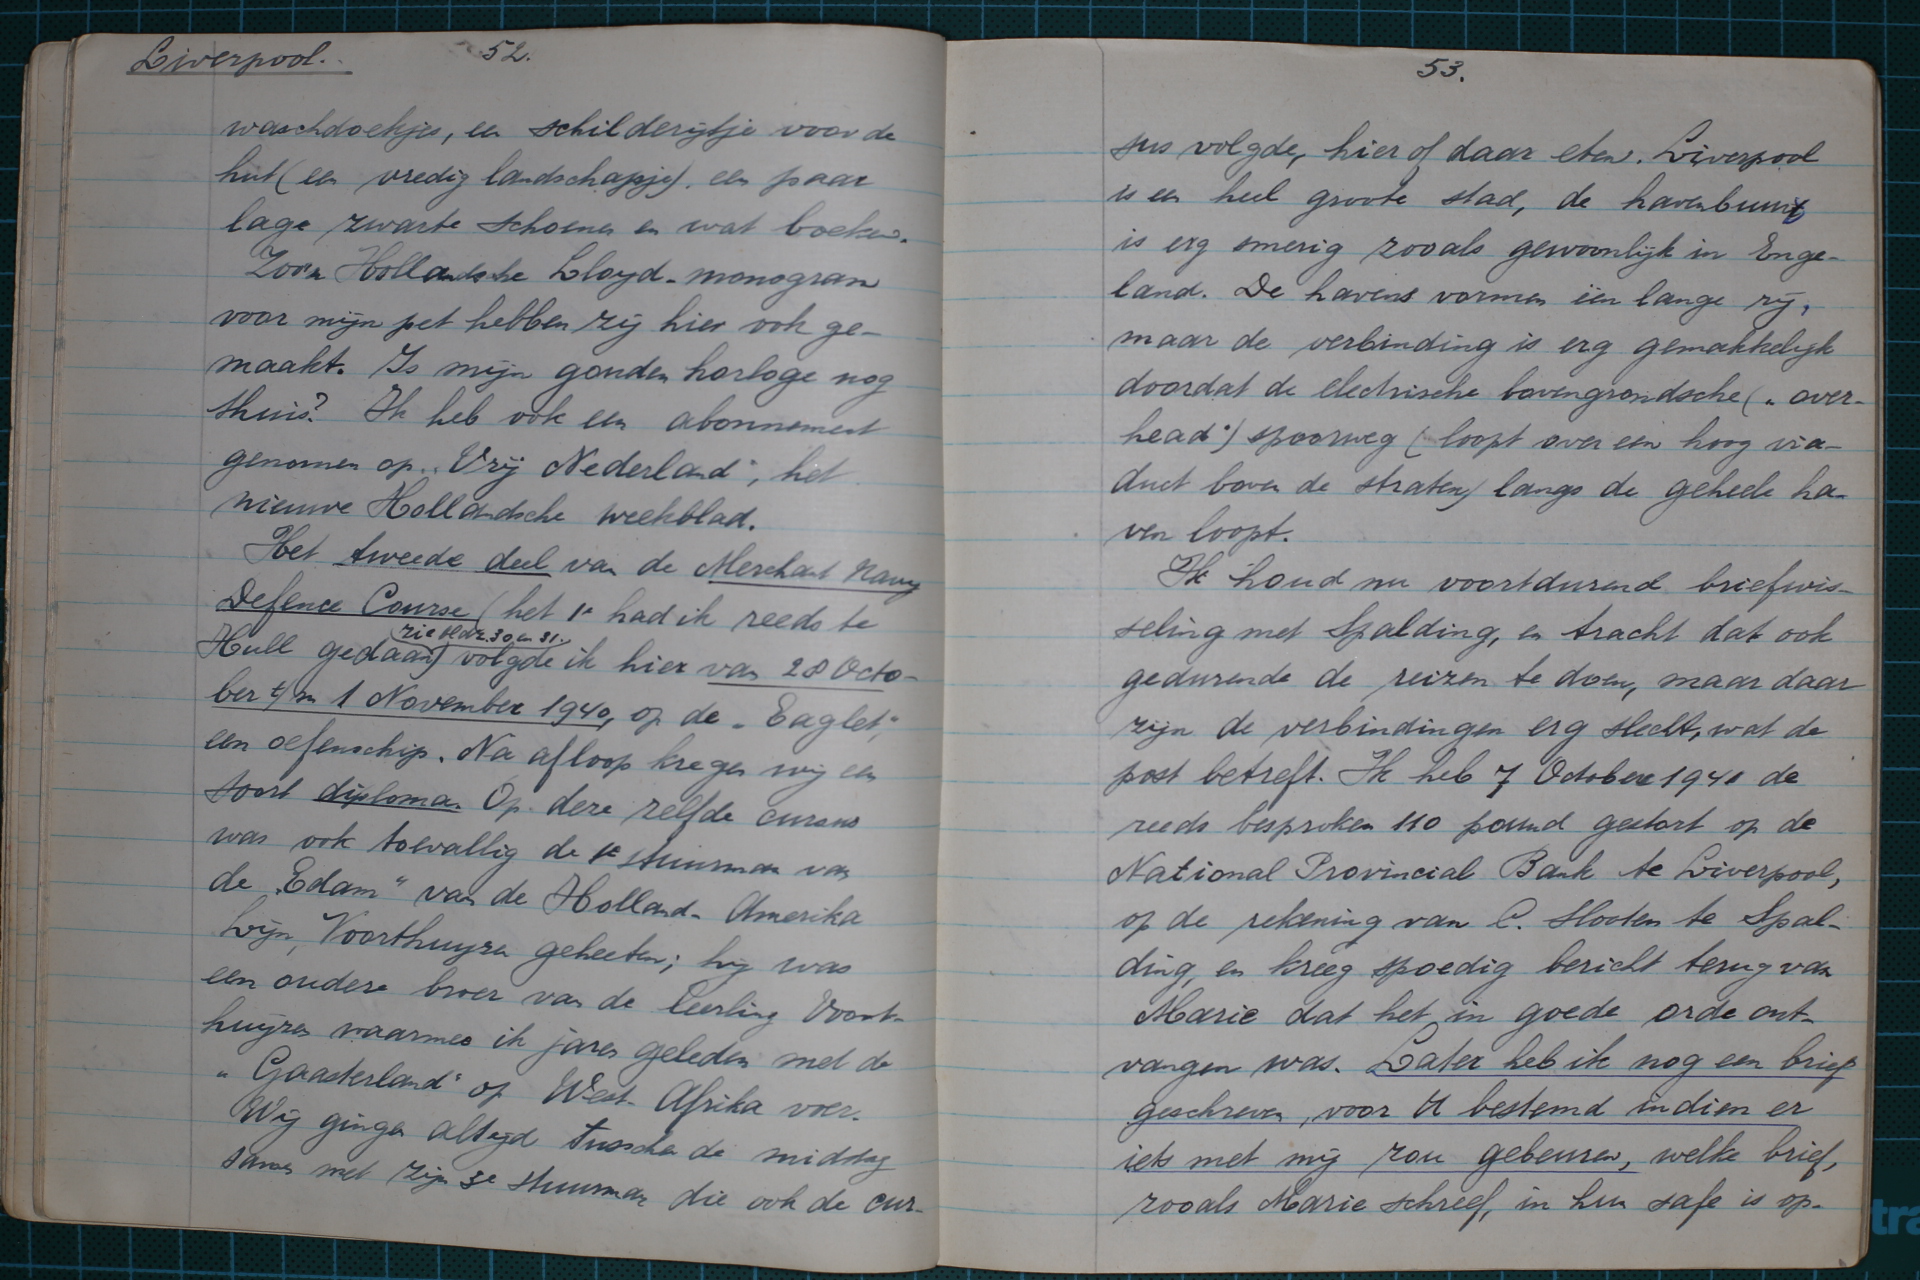 Liverpool. 52.
waschdoekjes, een schilderijtje voor de
hut (een vredig landschapje). een paar
lage zwarte schoenen en wat boeken.
Zoo'n Hollandsche Lloyd-monogram
voor mijn pet hebben zij hier ook ge-
maakt. Is mijn gouden horloge nog
thuis? Ik heb ook een abonnement
genomen op „Vrij Nederland", het
nieuwe Hollandsche weekblad.
Het tweede deel van de Merchant Navy
Defence Course (het 1e had ik reeds te
zie bldz. 30 en 31.
Hull gedaan) volgde ik hier van 28 Octo-
ber t/m 1 November 1940, op de „Eaglet",
een oefenschip. Na afloop kregen wij een
soort diploma. Op deze zelfde cursus
was ook toevallig de 1e stuurman van
de „Edam" van de Holland-Amerika
Lijn, Voorthuyzen geheeten; hij was
een oudere broer van de leerling Voort-
huyzen waarmee ik jaren geleden met de
„Gaasterland" op West-Afrika voer.
Wij gingen altijd tusschen de middag
samen met zijn 3e stuurman die ook de cur-
53.
sus volgde, hier of daar eten. Liverpool
is een heel groote stad, de havenbuurt
is erg smerig zooals gewoonlijk in Enge-
land. De havens vormen één lange rij,
maar de verbinding is erg gemakkelijk
doordat de electrische bovengrondsche („over-
head") spoorweg (loopt over een hoog via-
duct boven de straten) langs de geheele ha-
ven loopt.
Ik houd nu voortdurend briefwis-
seling met Spalding, en tracht dat ook
gedurende de reizen te doen, maar daar
zijn de verbindingen erg slecht, wat de
post betreft. Ik heb 7 October 1940 de
reeds besproken 110 pound gestort op de
National Provincial Bank te Liverpool,
op de rekening van C. Slooten te Spal-
ding, en kreeg spoedig bericht terug van
Marie dat het in goede orde ont-
vangen was. Later heb ik nog een brief
geschreven, voor U bestemd indien er
iets met mij zou gebeuren, welke brief,
zooals Marie schreef, in hun safe is op-
tra